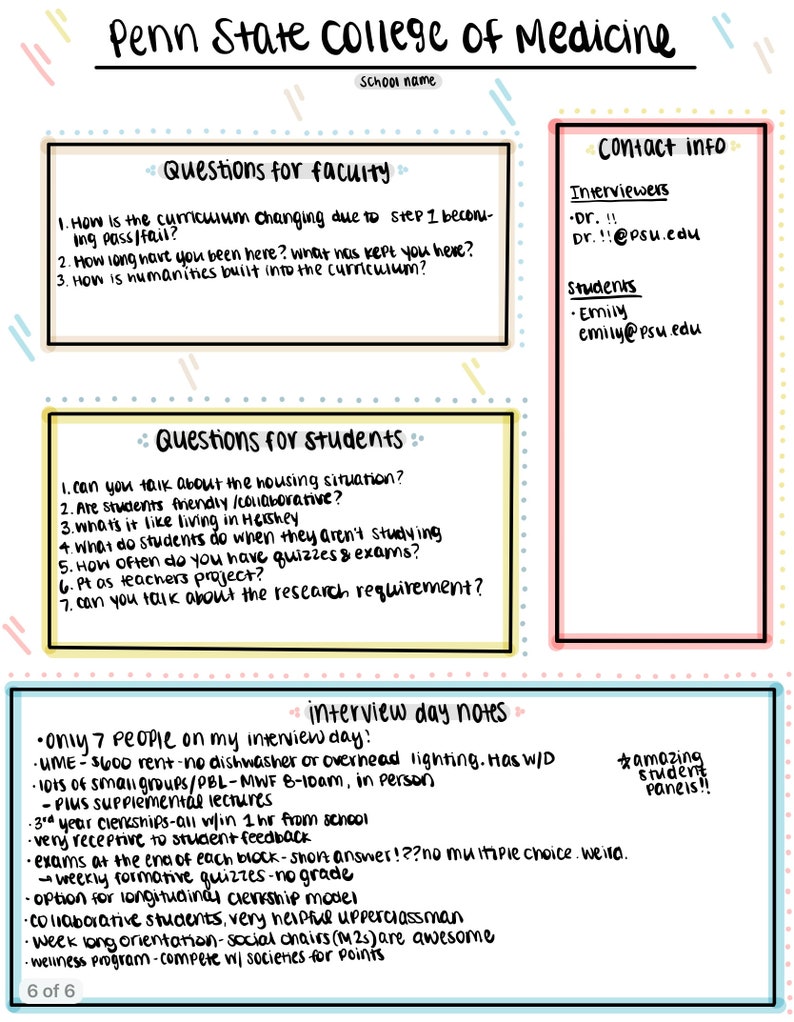 Penn State College of Medicine
School name
Questions for faculty
1. How is the curriculum changing due to Step 1 becom-
ing pass/fail?
2. How long have you been here? What has kept you here?
3. How is humanities built into the curriculum?
Contact info
Interviewers
• Dr. !!
Dr. !!@psu.edu
Students
• Emily
emily@psu.edu
Questions for students
1. Can you talk about the housing situation?
2. Are students friendly/collaborative?
3. What's it like living in Hershey
4. What do students do when they aren't studying
5. How often do you have quizzes & exams?
6. Pt as teachers project?
7. Can you talk about the research requirement?
interview day notes
• Only 7 people on my interview day!
• UME - $600 rent - no dishwasher or overhead lighting. Has W/D
• lots of small groups/PBL - MWF 8-10am, in person
- Plus supplemental lectures
• 3rd year clerkships - all w/in 1 hr from school
• very receptive to student feedback
• exams at the end of each block - short answer!?? no multiple choice. weird.
→ weekly formative quizzes - no grade
• option for longitudinal clerkship model
• collaborative students, very helpful upperclassman
• week long orientation - social chairs (M2s) are awesome
• wellness program - compete w/ societies for points
☆ amazing
student
panels!!
6 of 6